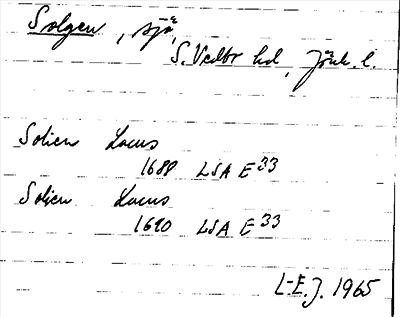 Solgen, sjö,
S. Vedbo hd, Jönk. l.
Solien Lacus
1688 LSA E 33
Solien Lacus
1690 LSA E 33
L-E.J. 1965